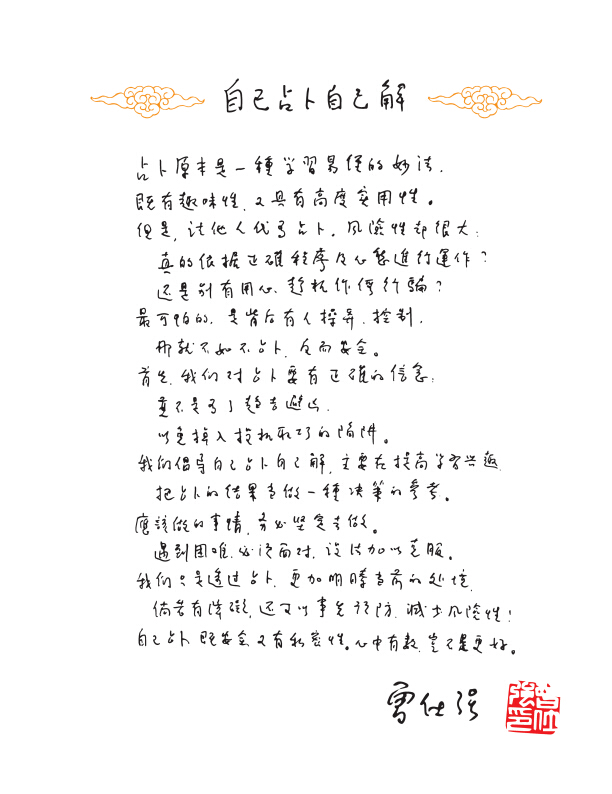 自己占卜自己解
占卜原本是一種学習易经的妙法.
既有趣味性,又具有高度实用性。
但是,让他人代为占卜,风險性却很大:
真的依据正確程序及心態進行運作?
还是别有用心,趁机作便行騙?
最可怕的,是背后有人操弄、控制,
那就不如不占卜,反而安全。
首先,我们对占卜要有正確的信念:
並不是为了趋吉避凶,
以免掉入投机取巧的陷阱。
我们倡导自己占卜自己解,主要在提高学習兴趣,
把占卜的结果当做一種决策的參考。
應該做的事情,务必坚定去做。
遇到困难,必须面对,设法加以克服。
我们只是透过占卜,更加明瞭当前的处境,
倘若有障碍,还可以事先预防,減少风險性!
自己占卜,既安全,又有私密性。心中有数,岂不是更好。
曾仕强